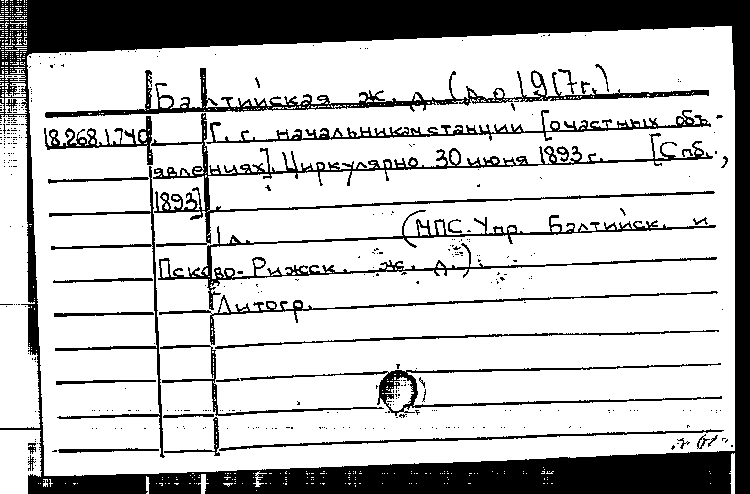 Балтийская ж. д. (до 1917г.).
18.268.1.740. Г. г. начальникам станции [о частных объ-
явлениях]. Циркулярно. 30 июня 1893 г. [Спб.,
1893].
1 л. (МПС. Упр. Балтийск. и
Псково-Рижск. ж. д.).
Литогр.